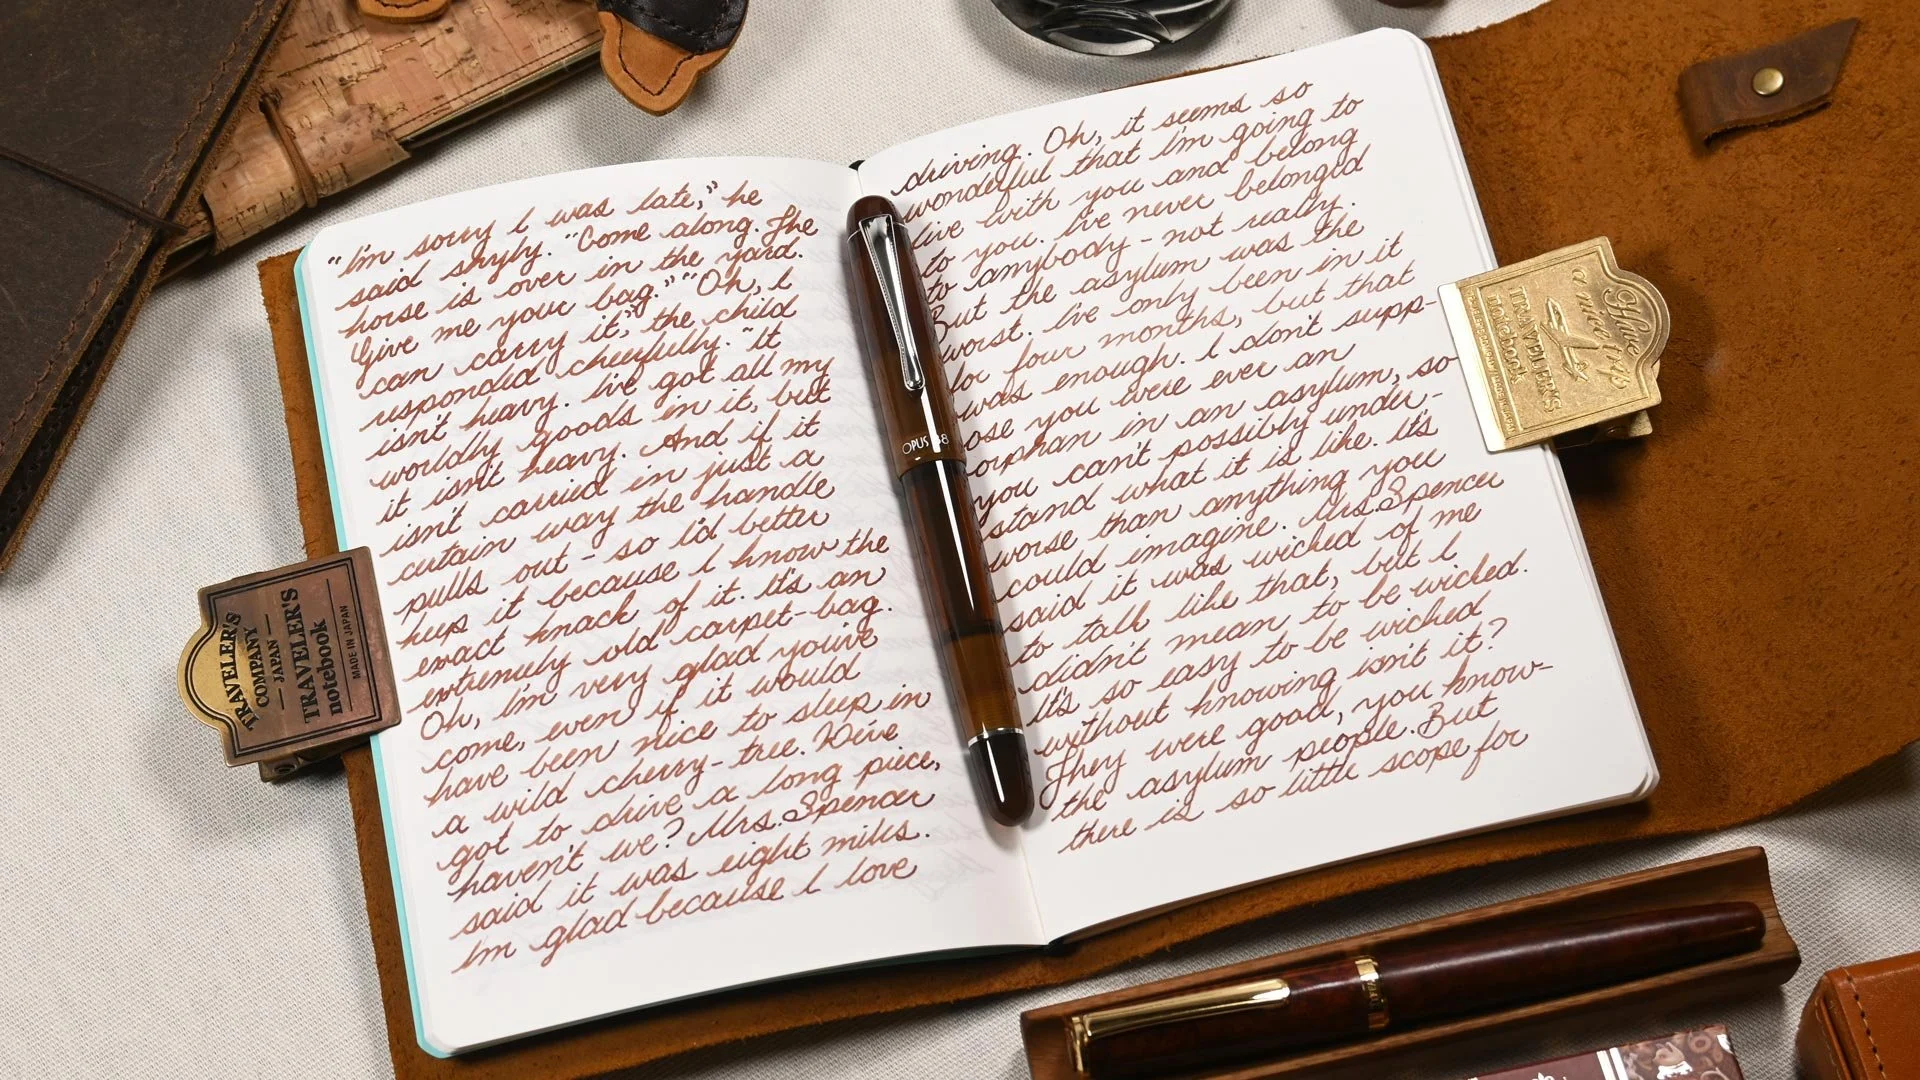 "I'm sorry I was late," he
said shyly. "Come along. The
horse is over in the yard.
Give me your bag." "Oh, I
can carry it," the child
responded cheerfully. "It
isn't heavy. I've got all my
worldly goods in it, but
it isn't heavy. And if it
isn't carried in just a
certain way the handle
pulls out - so I'd better
keep it because I know the
exact knack of it. It's an
extremely old carpet-bag.
Oh, I'm very glad you've
come, even if it would
have been nice to sleep in
a wild cherry-tree. We've
got to drive a long piece,
haven't we? Mrs. Spencer
said it was eight miles.
I'm glad because I love
driving. Oh, it seems so
wonderful that I'm going to
live with you and belong
to you. I've never belonged
to anybody - not really.
But the asylum was the
worst. I've only been in it
for four months, but that
was enough. I don't supp-
ose you were ever an
orphan in an asylum, so
you can't possibly under-
stand what it is like. It's
worse than anything you
could imagine. Mrs. Spencer
said it was wicked of me
to talk like that, but I
didn't mean to be wicked.
It's so easy to be wicked
without knowing isn't it?
They were good, you know-
the asylum people. But
there is so little scope for
OPUS 88
TRAVELER'S
COMPANY
JAPAN
TRAVELER'S
notebook
MADE IN JAPAN
Have
a nice trip
TRAVELER'S
notebook